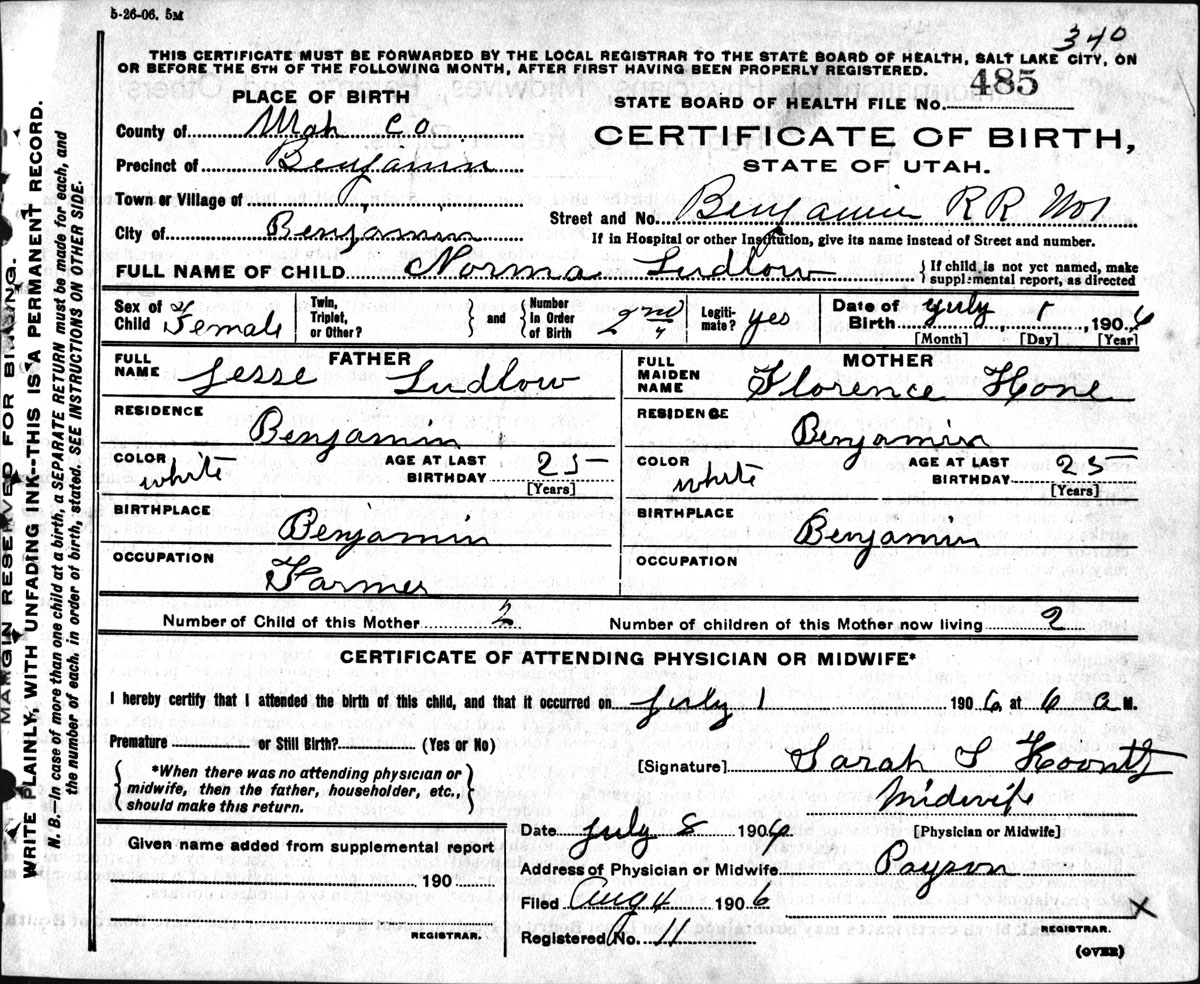 5-26-06. 5M
340
THIS CERTIFICATE MUST BE FORWARDED BY THE LOCAL REGISTRAR TO THE STATE BOARD OF HEALTH, SALT LAKE CITY, ON
OR BEFORE THE 5TH OF THE FOLLOWING MONTH, AFTER FIRST HAVING BEEN PROPERLY REGISTERED.
PLACE OF BIRTH
STATE BOARD OF HEALTH FILE No. 485
County of Utah Co
CERTIFICATE OF BIRTH,
Precinct of Benjamin
STATE OF UTAH.
Town or Village of
Street and No. Benjamin R R No 1
City of Benjamin
If in Hospital or other Institution, give its name instead of Street and number.
FULL NAME OF CHILD Norma Ludlow {If child is not yet named, make
supplemental report, as directed
Sex of Child Female
Twin, Triplet, or Other?
} and {
Number In Order of Birth 2nd
Legiti-mate? yes
Date of Birth July 1, 1906
[Month] [Day] [Year]
FATHER
FULL NAME Jesse Ludlow
MOTHER
FULL MAIDEN NAME Florence Hone
RESIDENCE Benjamin
RESIDENCE Benjamin
COLOR white AGE AT LAST BIRTHDAY 25 [Years]
COLOR white AGE AT LAST BIRTHDAY 25 [Years]
BIRTHPLACE Benjamin
BIRTHPLACE Benjamin
OCCUPATION Farmer
OCCUPATION
Number of Child of this Mother 2 Number of children of this Mother now living 2
CERTIFICATE OF ATTENDING PHYSICIAN OR MIDWIFE*
I hereby certify that I attended the birth of this child, and that it occurred on July 1 1906 at 6 a M.
Premature or Still Birth? (Yes or No)
[Signature] Sarah S Koontz
{*When there was no attending physician or
midwife, then the father, householder, etc.,
should make this return.}
Midwife
[Physician or Midwife]
Date July 8 1906
Given name added from supplemental report
190
REGISTRAR.
Address of Physician or Midwife Payson
Filed Aug 4 1906
X
Registered No. 11
REGISTRAR.
(OVER)
MARGIN RESERVED FOR BINDING.
WRITE PLAINLY, WITH UNFADING INK--THIS IS A PERMANENT RECORD.
N. B.--In case of more than one child at a birth, a SEPARATE RETURN must be made for each, and
the number of each, in order of birth, stated. SEE INSTRUCTIONS ON OTHER SIDE.